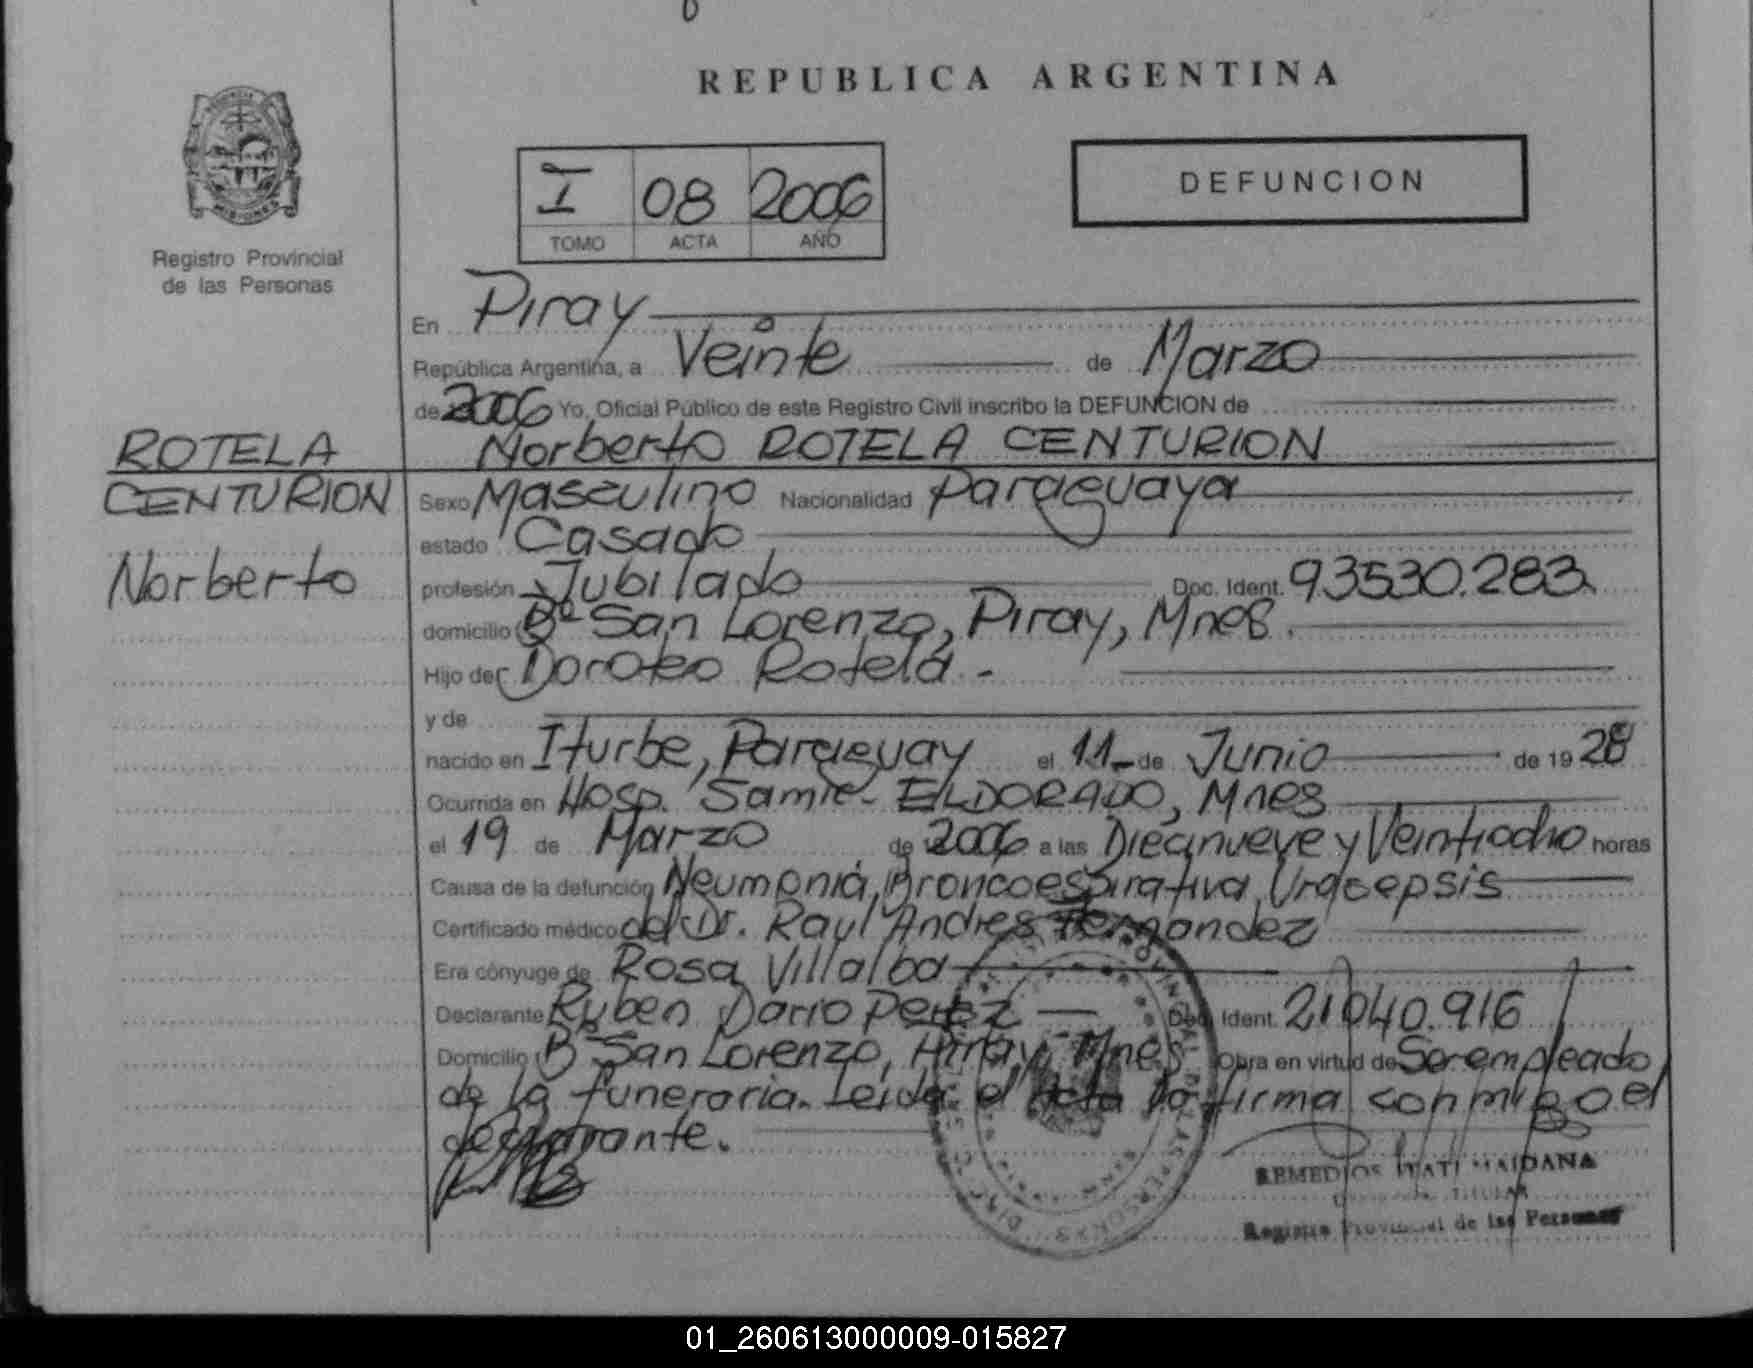 REPUBLICA ARGENTINA
I 08 2006
TOMO ACTA AÑO
DEFUNCION
MISIONES
Registro Provincial
de las Personas
En Piray
República Argentina, a Veinte de Marzo
de 2006 Yo, Oficial Público de este Registro Civil inscribo la DEFUNCION de
ROTELA
CENTURION
Norberto
Norberto ROTELA CENTURION
Sexo Masculino Nacionalidad Paraguaya
estado Casado
profesión Jubilado Doc. Ident. 93530.283
domicilio Bº San Lorenzo, Piray, Mnes.
Hijo de Doroteo Rotela -
y de
nacido en Iturbe, Paraguay el 11 de Junio de 1928
Ocurrida en Hosp. Samic - ELDORADO, Mnes
el 19 de Marzo de 2006 a las Diecinueve y Veintiocho horas
Causa de la defunción Neumonia, Broncoespirativa, Urocepsis
Certificado médico del Dr. Raul Andres Fernandez
Era cónyuge de Rosa Villalba
Declarante Ruben Dario Perez Doc. Ident. 21040.916
Domicilio Bº San Lorenzo, Piray, Mnes Obra en virtud de Ser empleado
de la funeraria. Leida el Acta la firma conmigo el
declarante.
REMEDIOS ITATI MAIDANA
TITULAR
Registro Provincial de las Personas
01_260613000009-015827